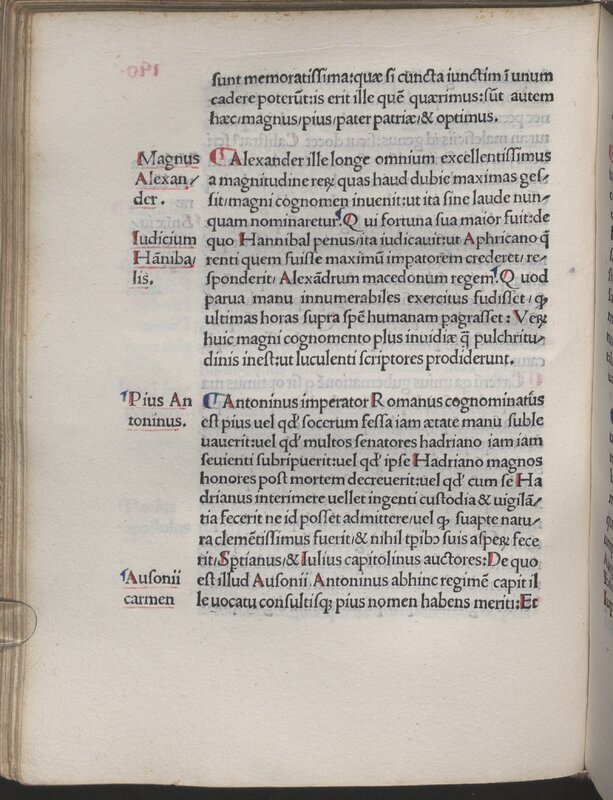 sunt memoratissima:quæ si cuncta iunctim ī unum
cadere poterūt:is erit ille quē quærimus:sūt autem
hæc/magnus/pius/pater patriæ/& optimus.
Magnus
Alexan/
der.
Iudicium
Hāniba/
lis.
Alexander ille longe omnium excellentissimus
a magnitudine reꝝ quas haud dubie maximas ges/
sit/magni cognomen inuenit:ut ita sine laude nun/
quam nominaretur. Q ui fortuna sua maior fuit:de
quo Hannibal penus/ita iudicauit:ut Aphricano q̄
renti quem fuisse maximū impatorem crederet/re/
sponderit/Alexādrum macedonum regem. Q uod
parua manu innumerabiles exercitus fudisset/ꝙ
ultimas horas supra spē humanam pagrasset: Veꝝ
huic magni cognomento plus inuidiæ q̄ pulchritu/
dinis inest:ut luculenti scriptores prodiderunt.
Pius An
toninus.
Antoninus imperator Romanus cognominatus
est pius uel qđ socerum fessa iam ætate manu suble
uauerit:uel qđ multos senatores hadriano iam iam
seuienti subripuerit:uel qđ ipse Hadriano magnos
honores post mortem decreuerit:uel qđ cum se Ha
drianus interimere uellet ingenti custodia & uigilā/
tia fecerit ne id posset admittere/uel ꝙ suapte natu/
ra clemētissimus fuerit/& nihil tpibo suis aspeꝝ fece
rit/Sptianus/& Iulius capitolinus auctores: De quo
Ausonii
carmen
est illud Ausonii. Antoninus abhinc regimē capit il
le uocatu consultisqꝫ pius nomen habens meriti: Et